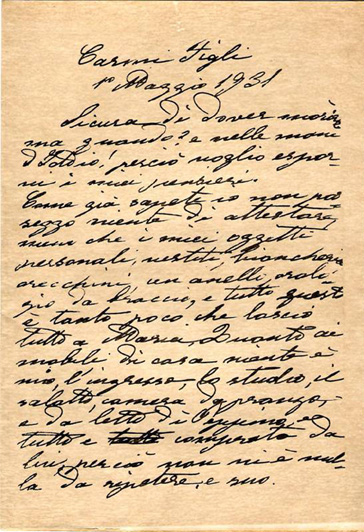 Carmi Figli
1° Maggio 1931
Sicura di dover morire
ma quando? e nelle mani
d'Iddio! perciò voglio espor-
vi i miei pensieri.
Come già sapete io non pos-
seggo niente di
meno che i miei oggetti
personali, vestiti, biancheria
orecchini, un anello, orolo-
gio da braccio, e tutto questo
è tanto poco che lascio
tutto a Maria. Quanto ai
mobili di casa niente è
mio, l'ingresso, lo studio, il
salotto, camera da pranzo,
e da letto di Peppino, e
tutto e comperato da
lui, perciò non vi è nul-
la da ripetere, e suo.